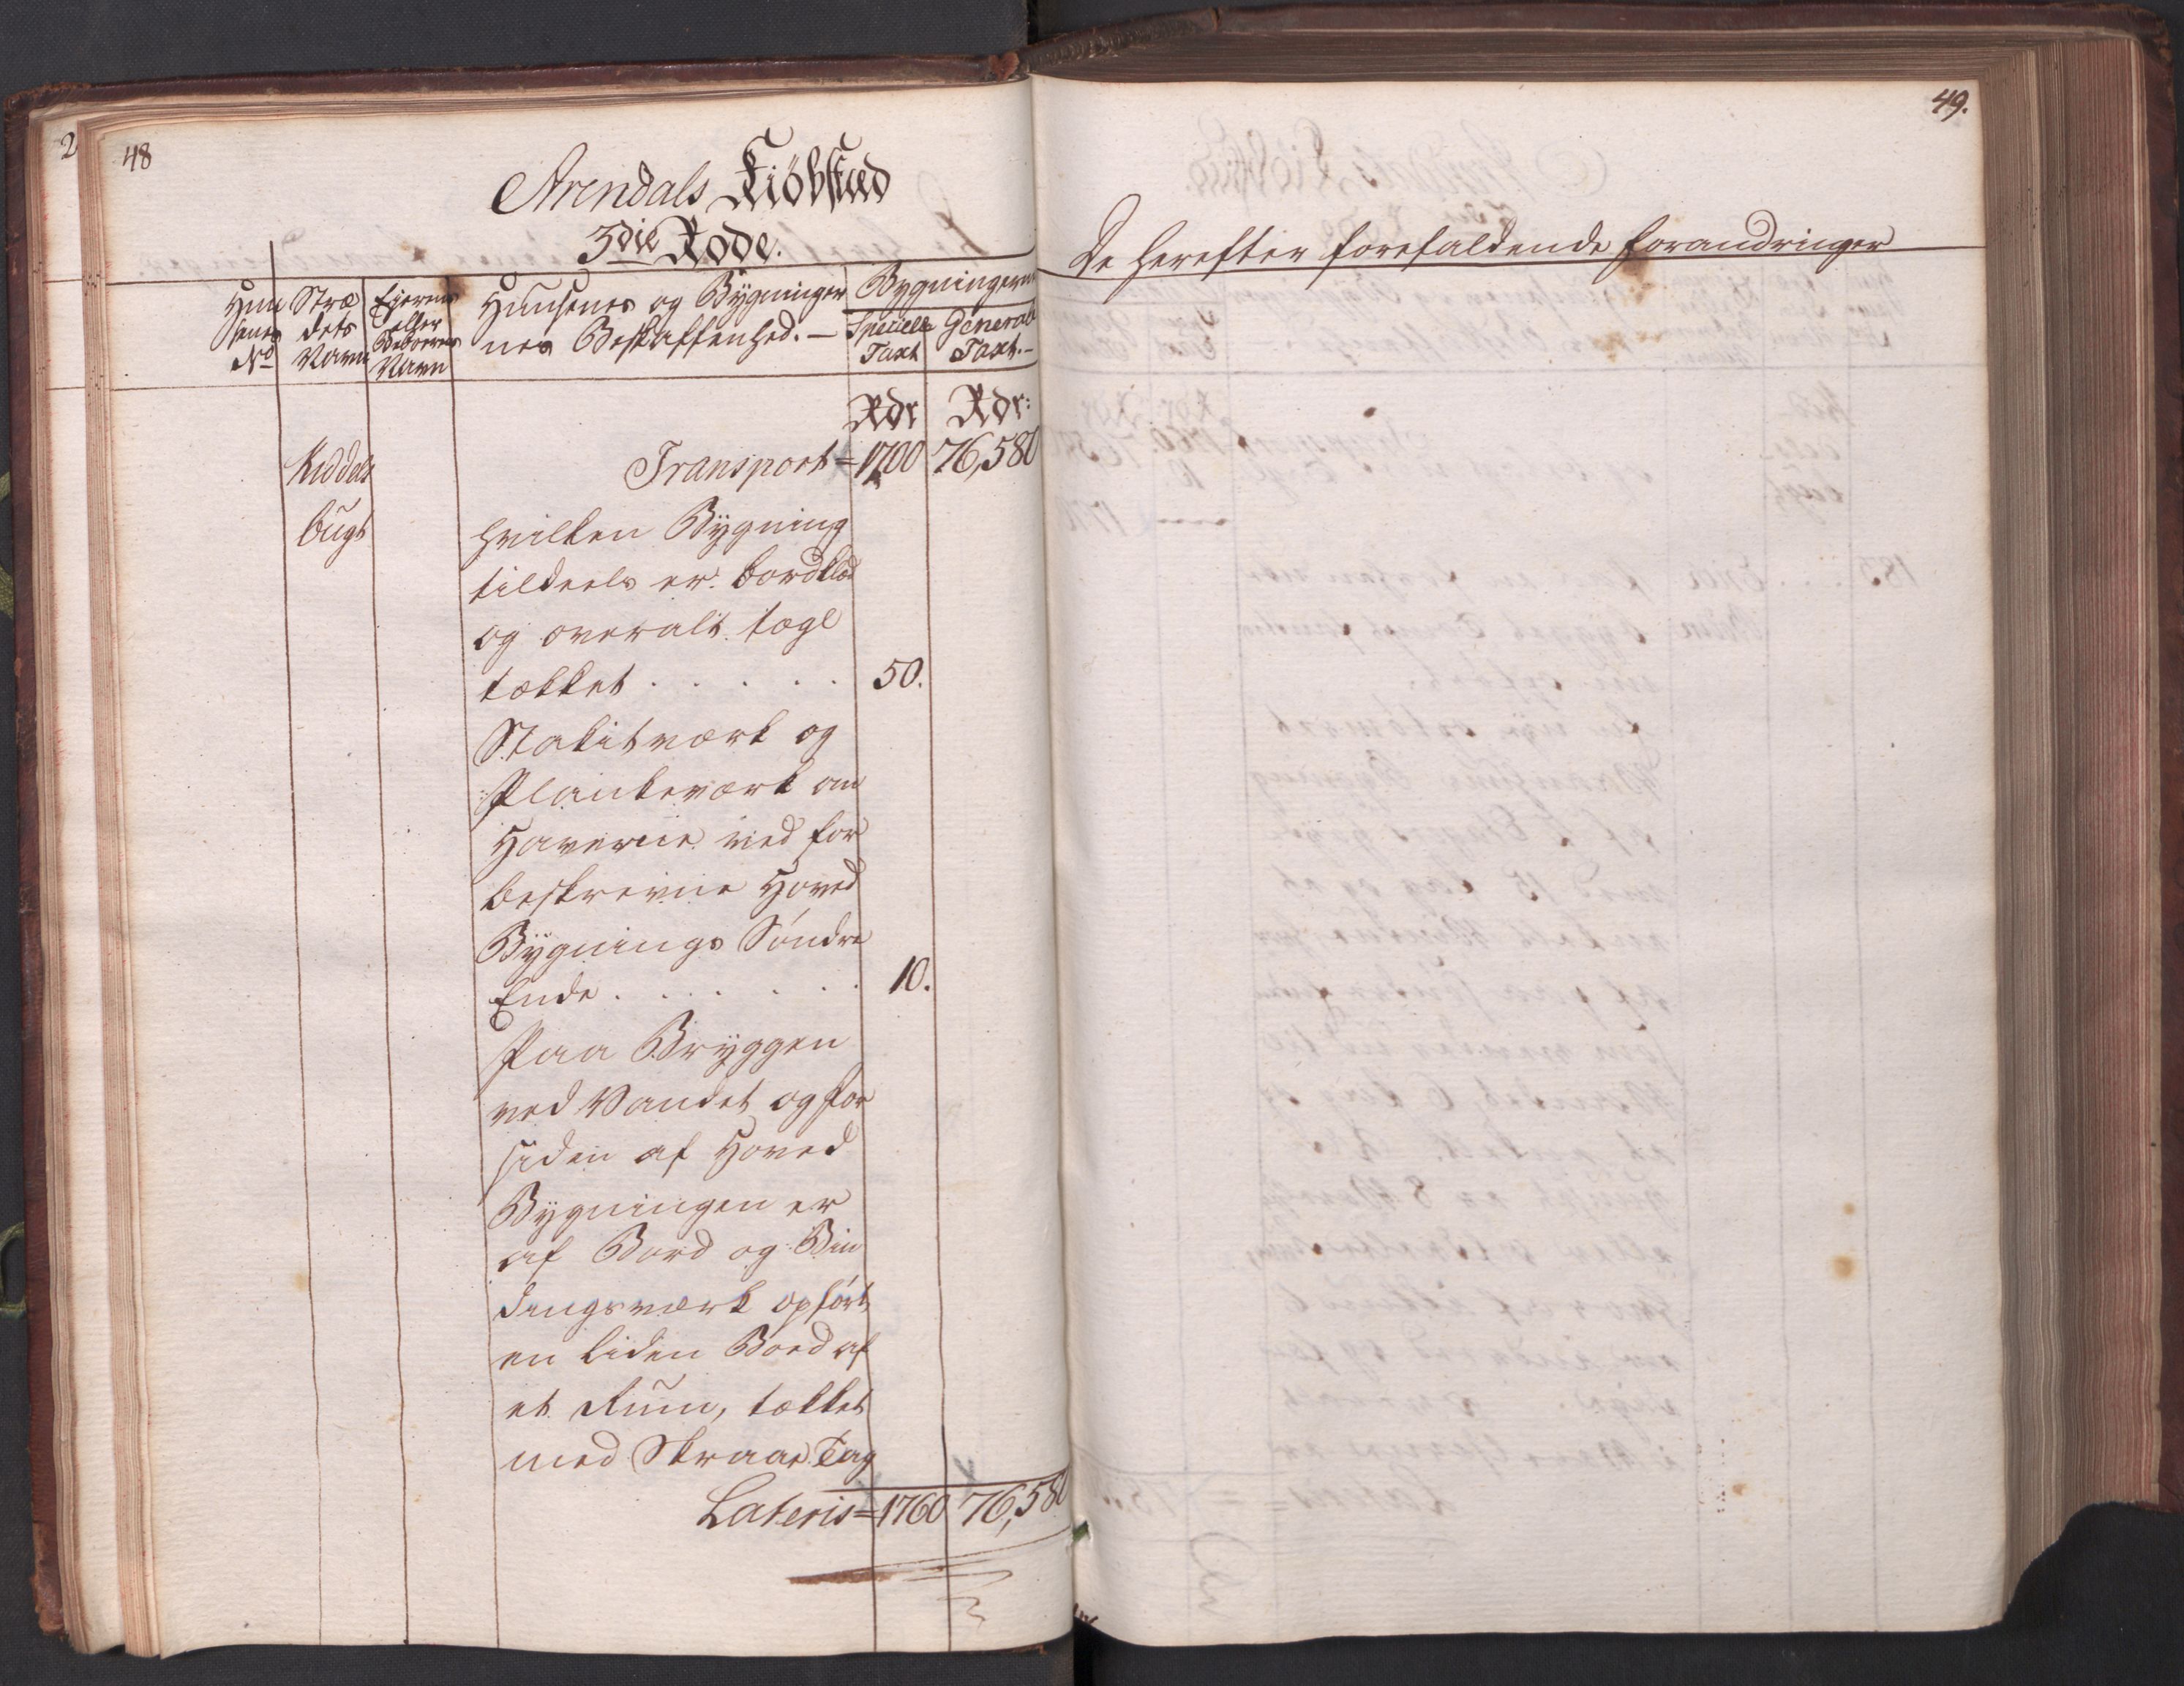 48
Arendals Kiöbstæd
3die Rode.
Huu
senes
No
Stræ
dets
Navn
Ejerens
eller
Beboerens
Navn
Huusenes og Bygninger
nes Beskaffenhed. –
Bygningernes
Specielle
Taxt
Generale
Taxt. –
Rdr Rdr:
Transport = 1700 76,580
Kiddels
bugt
hvilken Bygning
tildeels er bordklæd
og overalt tægl
tækket . . . . . 50.
Stakitværk og
Plankeværk om
Haverne ved for
beskrevne Hoved
Bygnings Søndre
Ende . . . . . . 10.
Paa Bryggen
ved Vandet og for
siden af Hoved
Bygningen er
af Bord og Bin
dingsværk opført
en liden Boed af
et Rum, tækket
med Skraae Tag
Lateris = 1760 76,580
49.
De herefter forefaldende Forandringer